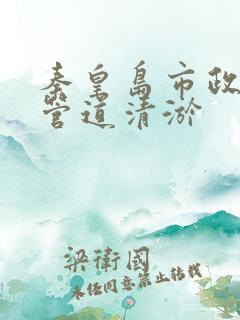 秦皇岛市政
管道清淤
梁衛國
未经同意禁止转载